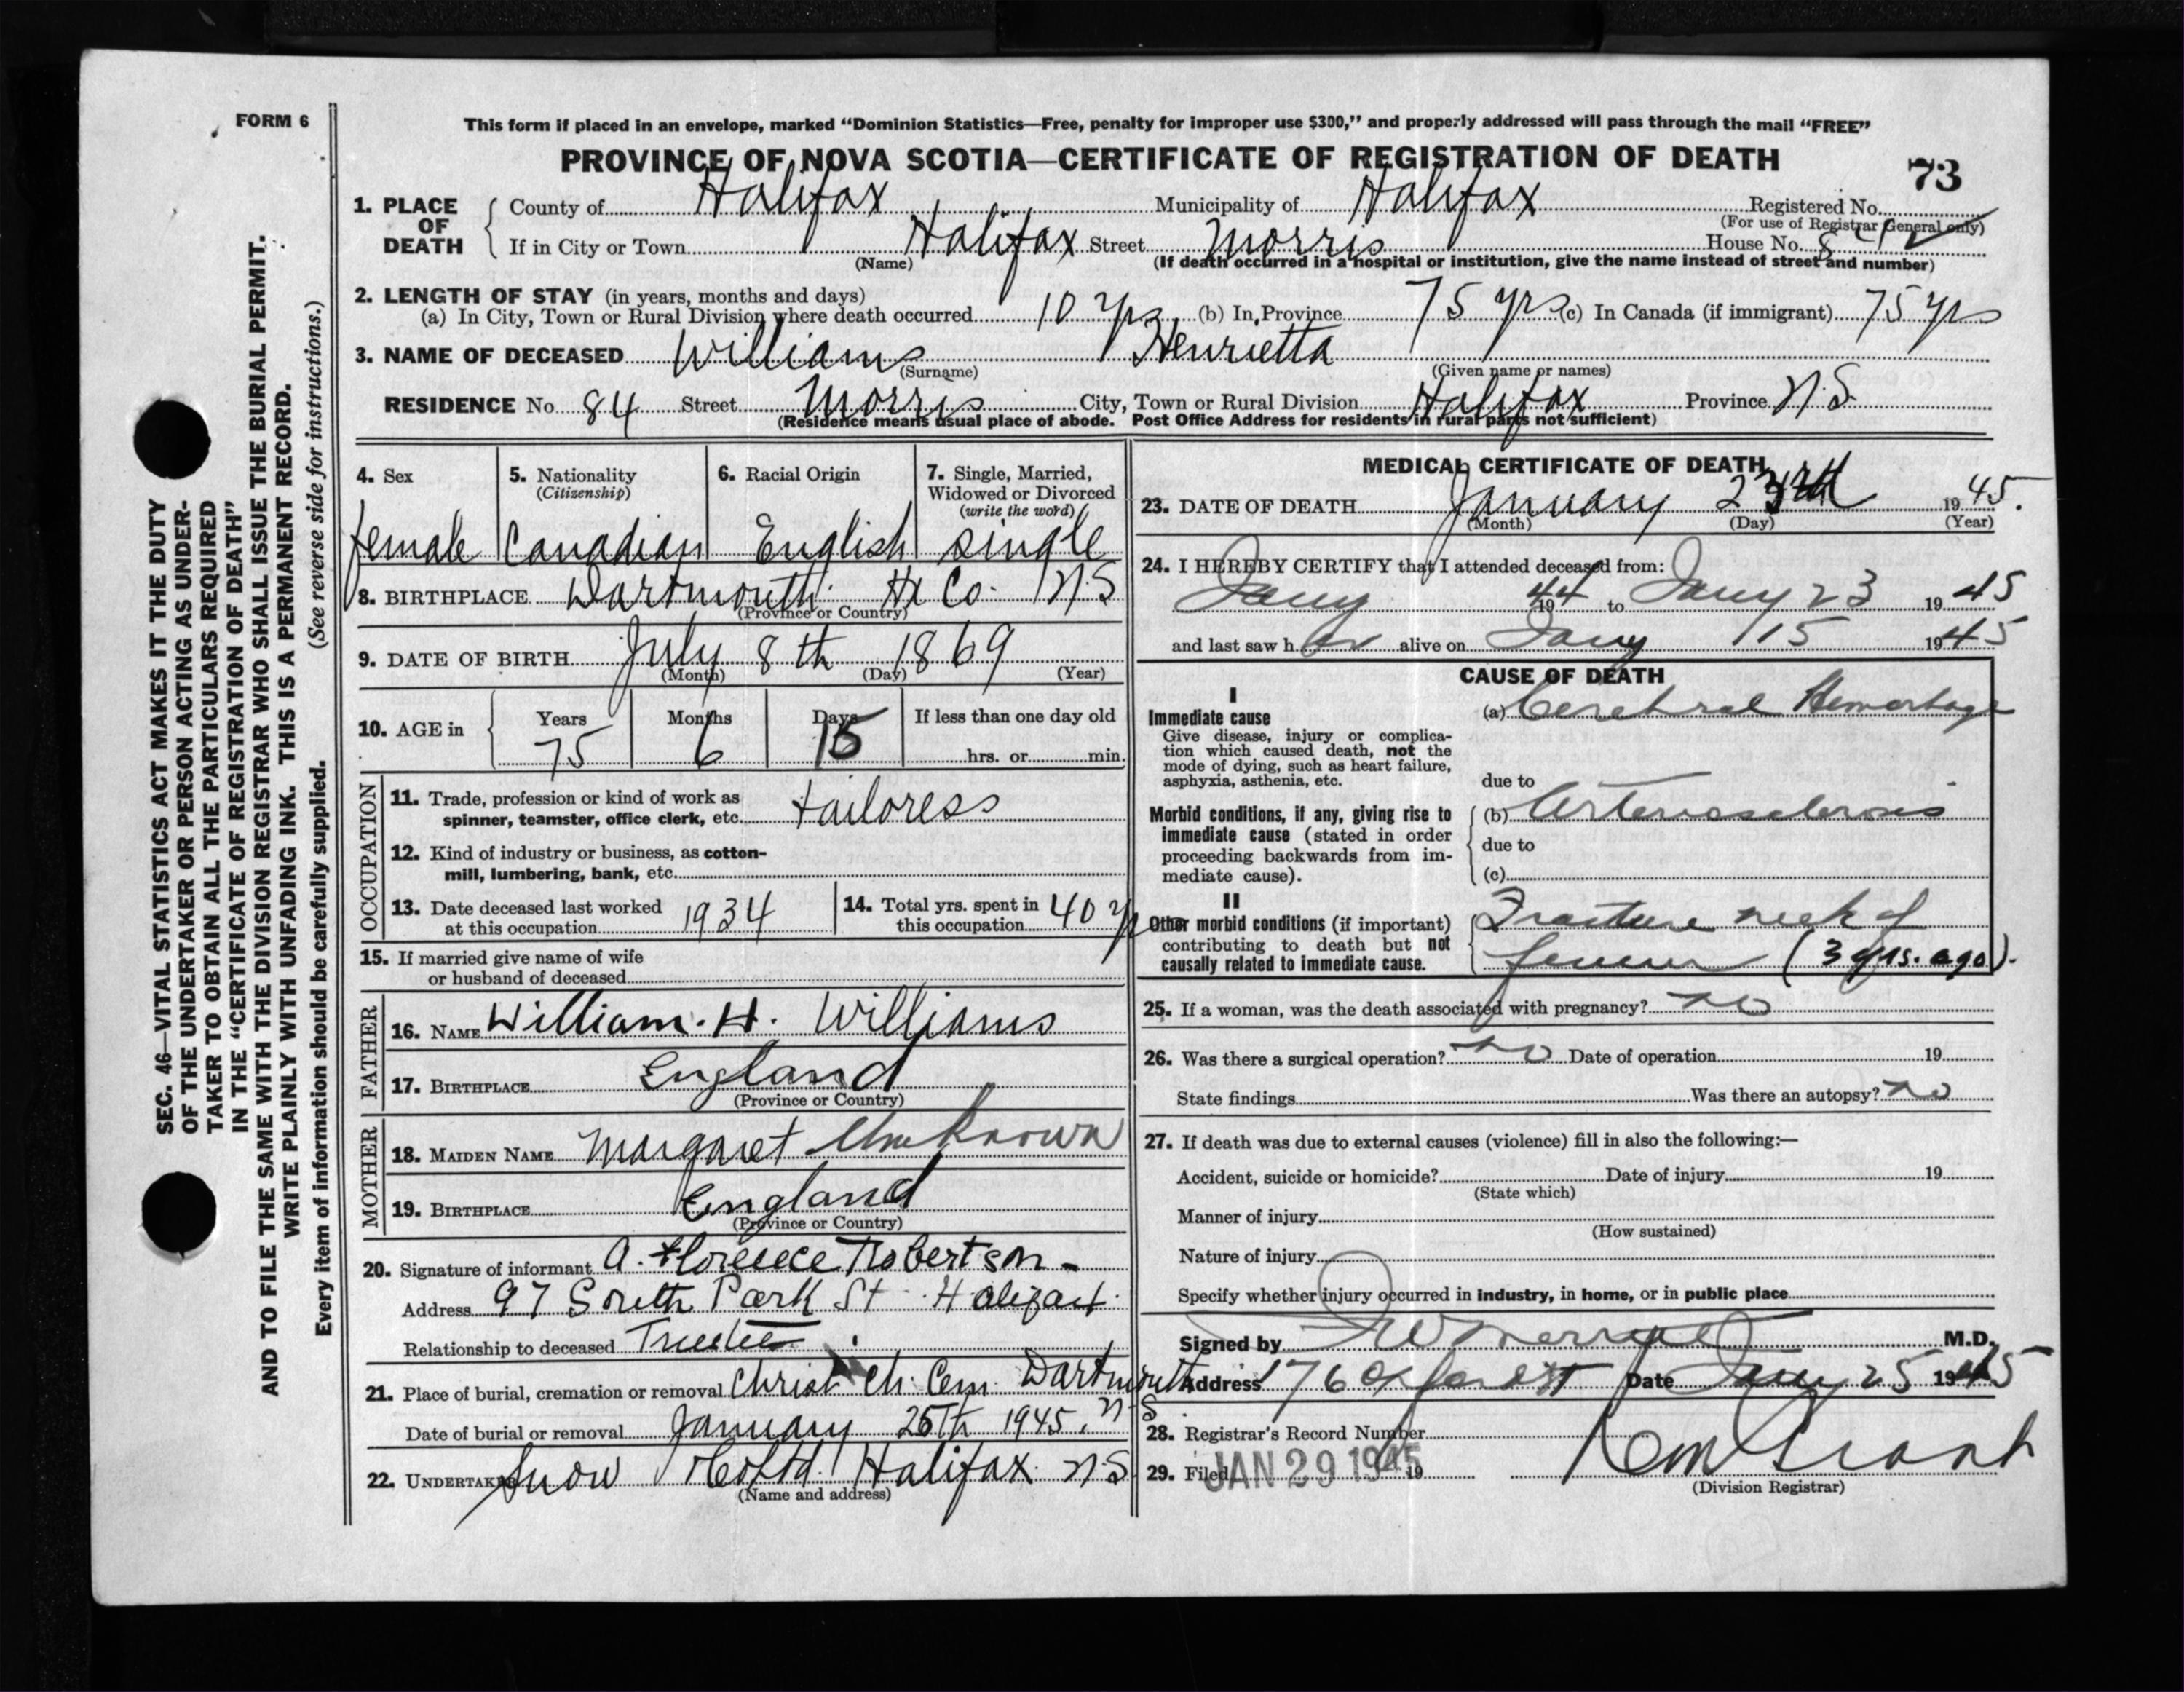 FORM 6
This form if placed in an envelope, marked “Dominion Statistics—Free, penalty for improper use $300,” and properly addressed will pass through the mail “FREE”
PROVINCE OF NOVA SCOTIA—CERTIFICATE OF REGISTRATION OF DEATH
73
1. PLACE OF DEATH
County of Halifax Municipality of Halifax Registered No.
(For use of Registrar General only)
If in City or Town Halifax Street Morris House No. 84
(Name) (If death occurred in a hospital or institution, give the name instead of street and number)
2. LENGTH OF STAY (in years, months and days)
(a) In City, Town or Rural Division where death occurred 10 yrs (b) In Province 75 yrs (c) In Canada (if immigrant) 75 yrs
3. NAME OF DECEASED Williams Henrietta
(Surname) (Given name or names)
RESIDENCE No. 84 Street Morris City, Town or Rural Division Halifax Province N.S
(Residence means usual place of abode. Post Office Address for residents in rural parts not sufficient)
4. Sex
female
5. Nationality
(Citizenship)
Canadian
6. Racial Origin
English
7. Single, Married,
Widowed or Divorced
(write the word)
single
8. BIRTHPLACE Dartmouth Hx Co. N.S
(Province or Country)
9. DATE OF BIRTH July 8th 1869
(Month) (Day) (Year)
10. AGE in
Years Months Days If less than one day old
75 6 15 hrs. or min.
OCCUPATION
11. Trade, profession or kind of work as
spinner, teamster, office clerk, etc. tailoress
12. Kind of industry or business, as cotton-
mill, lumbering, bank, etc.
13. Date deceased last worked
at this occupation 1934
14. Total yrs. spent in
this occupation 40 yr
15. If married give name of wife
or husband of deceased
FATHER
16. NAME William. H. Williams
17. BIRTHPLACE England
(Province or Country)
MOTHER
18. MAIDEN NAME Margaret Unknown
19. BIRTHPLACE England
(Province or Country)
20. Signature of informant A. Florence Robertson -
Address 97 South Park St Halifax
Relationship to deceased Trustee
21. Place of burial, cremation or removal Christ Ch. Cem. Dartmouth
N.S.
Date of burial or removal January 25Th 1945.
22. UNDERTAKER Snow & Co Ltd. Halifax N.S
(Name and address)
MEDICAL CERTIFICATE OF DEATH
23. DATE OF DEATH January 23rd 1945.
(Month) (Day) (Year)
24. I HEREBY CERTIFY that I attended deceased from:
Jany 1944 to Jany 23 1945
and last saw her alive on Jany 15 1945
CAUSE OF DEATH
I
Immediate cause
Give disease, injury or complica-
tion which caused death, not the
mode of dying, such as heart failure,
asphyxia, asthenia, etc.
(a) Cerebral Hemorhage
due to
Morbid conditions, if any, giving rise to
immediate cause (stated in order
proceeding backwards from im-
mediate cause).
(b) Arteriosclerosis
due to
(c)
II
Other morbid conditions (if important)
contributing to death but not
causally related to immediate cause.
Fracture neck of
femur (3 yrs. ago).
25. If a woman, was the death associated with pregnancy? no
26. Was there a surgical operation? no Date of operation 19
State findings Was there an autopsy? no
27. If death was due to external causes (violence) fill in also the following:—
Accident, suicide or homicide? Date of injury 19
(State which)
Manner of injury
(How sustained)
Nature of injury
Specify whether injury occurred in industry, in home, or in public place
Signed by M.D.
Address 176 Oxford St Date Jany 25 1945
28. Registrar's Record Number
29. Filed JAN 29 1945 19
(Division Registrar)
SEC. 46—VITAL STATISTICS ACT MAKES IT THE DUTY
OF THE UNDERTAKER OR PERSON ACTING AS UNDER-
TAKER TO OBTAIN ALL THE PARTICULARS REQUIRED
IN THE “CERTIFICATE OF REGISTRATION OF DEATH”
AND TO FILE THE SAME WITH THE DIVISION REGISTRAR WHO SHALL ISSUE THE BURIAL PERMIT.
WRITE PLAINLY WITH UNFADING INK. THIS IS A PERMANENT RECORD.
Every item of information should be carefully supplied. (See reverse side for instructions.)